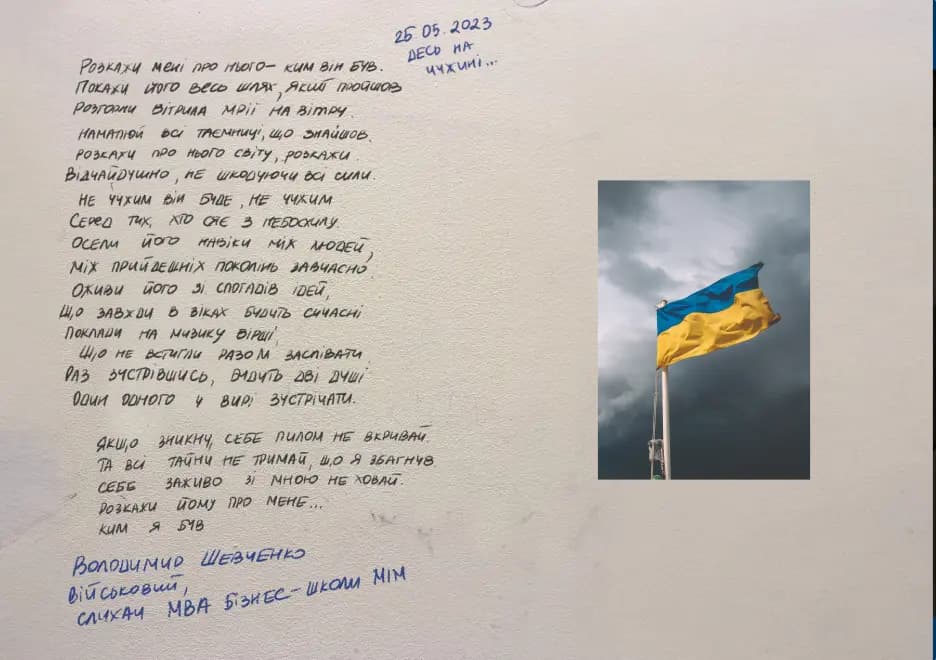 25.05.2023
ДЕСЬ НА
ЧУЖИНІ...
РОЗКАЖИ МЕНІ ПРО НЬОГО – КИМ ВІН БУВ.
ПОКАЖИ ЙОГО ВЕСЬ ШЛЯХ, ЯКИЙ ПРОЙШОВ
РОЗГОРНИ ВІТРИЛА МРІЇ НА ВІТРУ.
НАМАЛЮЙ ВСІ ТАЄМНИЦІ, ЩО ЗНАЙШОВ.
РОЗКАЖИ ПРО НЬОГО СВІТУ, РОЗКАЖИ
ВІДЧАЙДУШНО, НЕ ШКОДУЮЧИ ВСІ СИЛИ.
НЕ ЧУЖИМ ВІН БУДЕ, НЕ ЧУЖИМ
СЕРЕД ТИХ, ХТО СЯЄ З НЕБОСХИЛУ.
ОСЕЛИ ЙОГО НАВІКИ МІЖ ЛЮДЕЙ,
МІЖ ПРИЙДЕШНІХ ПОКОЛІНЬ ЗАВЧАСНО
ОЖИВИ ЙОГО ЗІ СПОГАДІВ ІДЕЙ,
ЩО ЗАВЖДИ В ВІКАХ БУДУТЬ СУЧАСНІ
ПОКЛАДИ НА МУЗИКУ ВІРШІ,
ЩО НЕ ВСТИГЛИ РАЗОМ ЗАСПІВАТИ
РАЗ ЗУСТРІВШИСЬ, БУДУТЬ ДВІ ДУШІ
ОДИН ОДНОГО У ВИРІ ЗУСТРІЧАТИ.
ЯКЩО ЗНИКНУ, СЕБЕ ПИЛОМ НЕ ВКРИВАЙ.
ТА ВСІ ТАЙНИ НЕ ТРИМАЙ, ЩО Я ЗБАГНУВ
СЕБЕ ЗАЖИВО ЗІ МНОЮ НЕ ХОВАЙ.
РОЗКАЖИ ЙОМУ ПРО МЕНЕ...
КИМ Я БУВ
ВОЛОДИМИР ШЕВЧЕНКО
ВІЙСЬКОВИЙ,
СЛУХАЧ МВА БІЗНЕС-ШКОЛИ МІМ